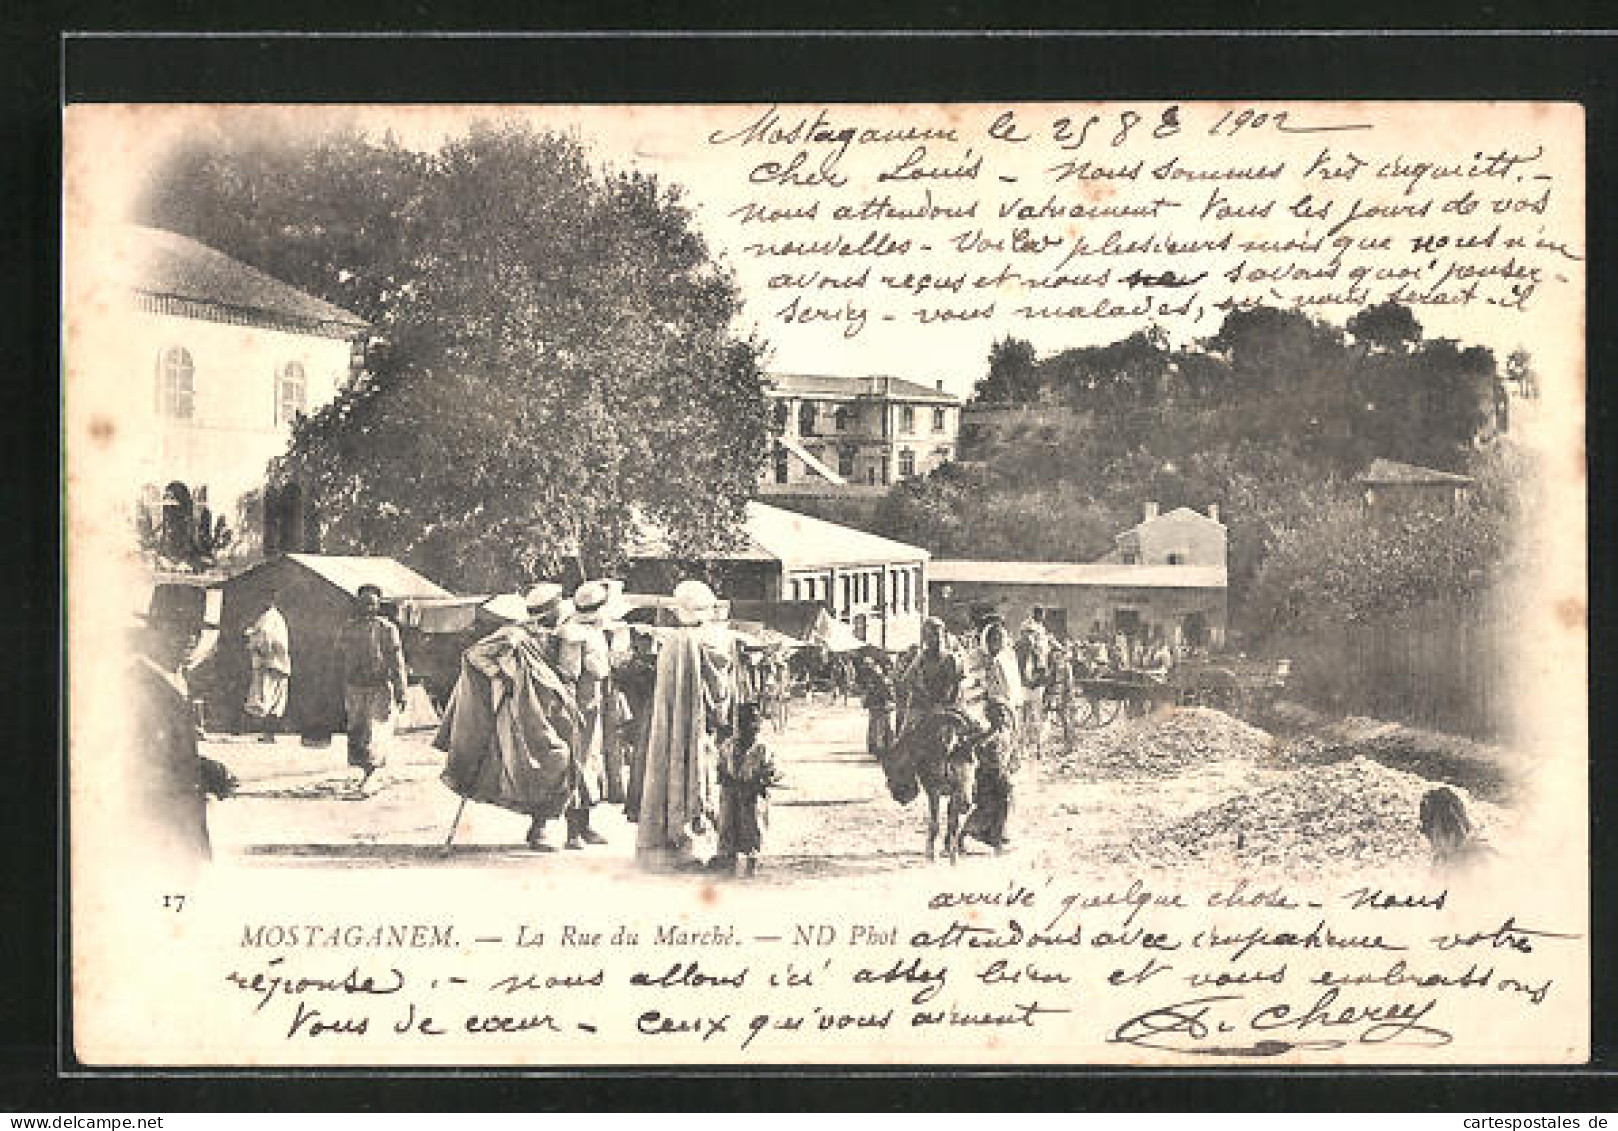 Mostaganem le 25 8bre 1902
Cher Louis - Nous sommes très inquiets. -
nous attendons vainement tous les jours de vos
nouvelles - Voilà plusieurs mois que nous n'en
avons reçus et nous ne savons quoi penser -
seriez - vous malades, ou nous serait-il
arrivé quelque chose - Nous
17
MOSTAGANEM. — La Rue du Marché. — ND Phot
attendons avec impatience votre
réponse. - nous allons ici assez bien et vous embrassons
tous de cœur - Ceux qui vous aiment
Cherey
delcampe.net
cartespostales de